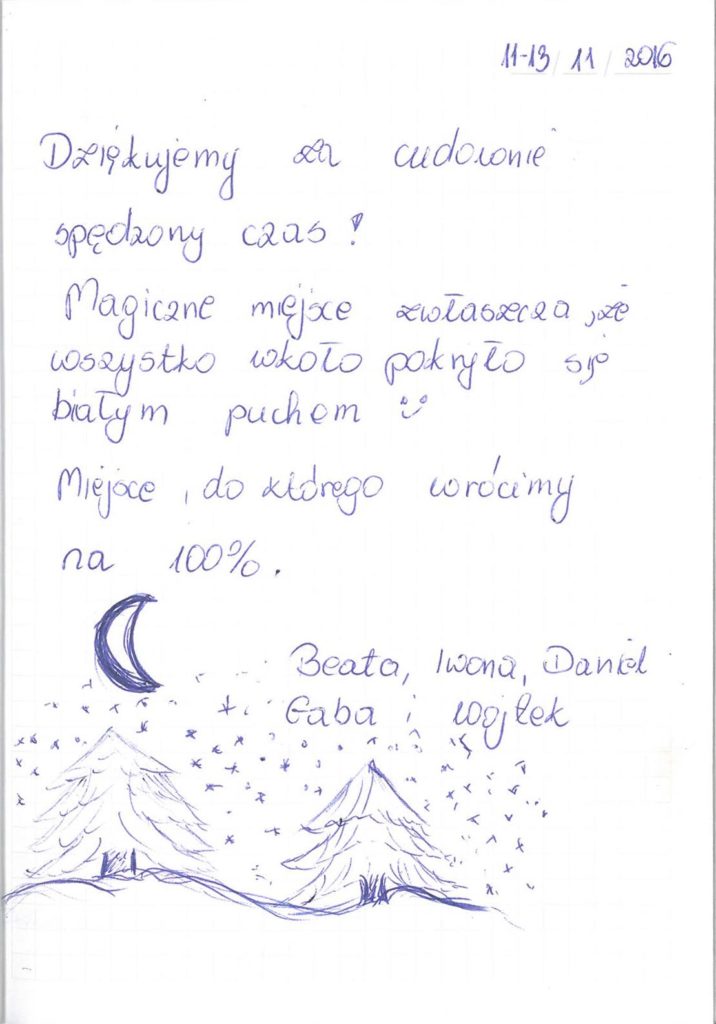 11-13/11/2016
Dziękujemy za cudownie
spędzony czas!
Magiczne miejsce zwłaszcza, że
wszystko wkoło pokryło się
białym puchem
Miejsce, do którego wrócimy
na 100%.
Beata, Iwona, Daniel
Gaba i Wojtek